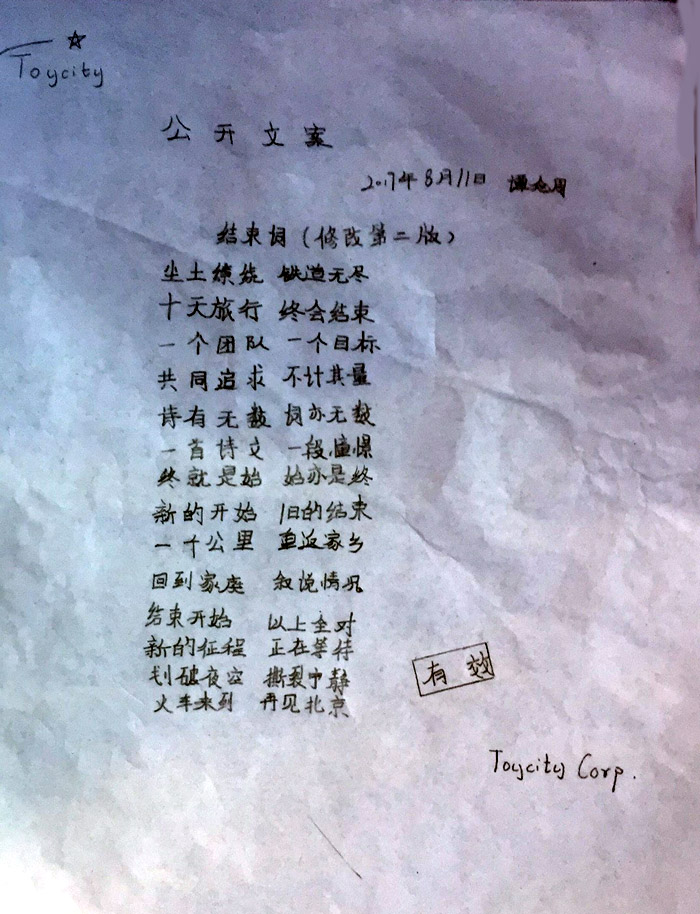 Toycity
公开文案
2017年8月11日
结束词（修改第二版）
尘土缭绕 铁道无尽
十天旅行 终会结束
一个团队 一个目标
共同追求 不计其量
诗有无数 词亦无数
一首诗文 一段憧憬
终就是始 始亦是终
新的开始 旧的结束
一千公里 重返家乡
回到家庭 叙说情况
结束开始 以上全对
新的征程 正在等待
划破夜空 撕裂宁静
火车来到 再见北京
有效
Toycity Corp.